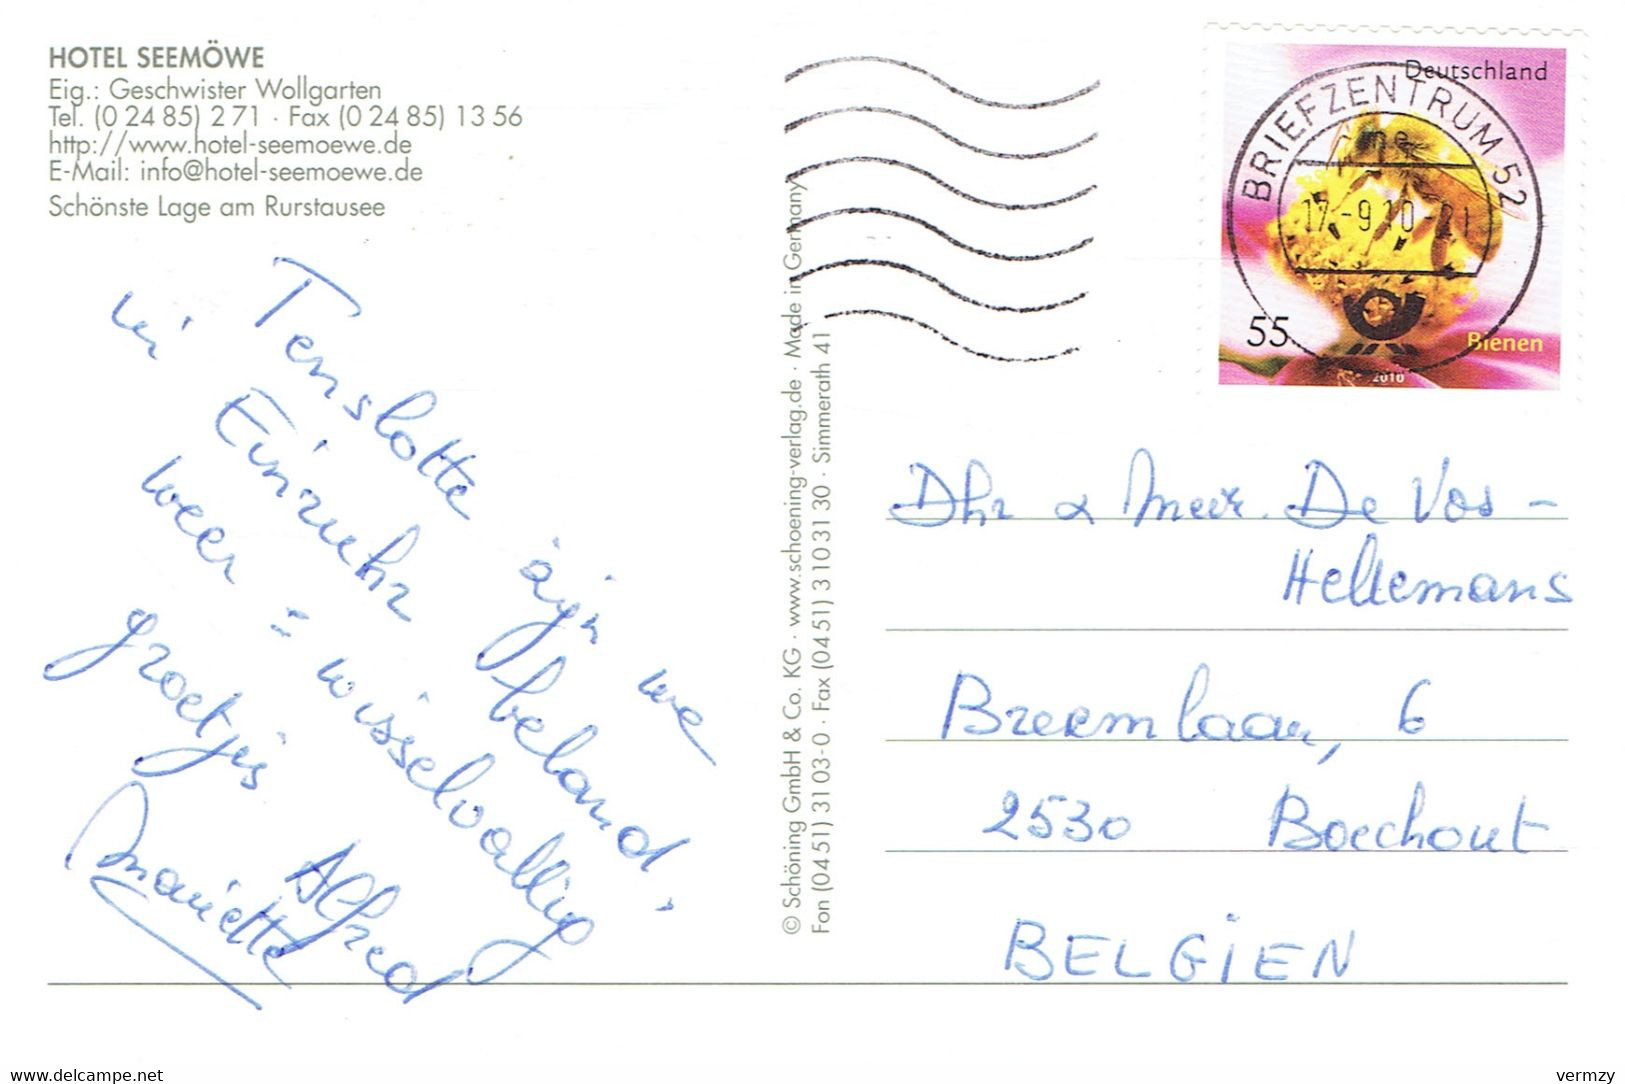 HOTEL SEEMÖWE
Eig.: Geschwister Wollgarten
Tel. (0 24 85) 2 71 · Fax (0 24 85) 13 56
http://www.hotel-seemoewe.de
E-Mail: info@hotel-seemoewe.de
Schönste Lage am Rurstausee
Tenslotte zijn we
in Einruhr beland,
weer = wisselvallig
groetjes
Alfred
Mariette
© Schöning GmbH & Co. KG · www.schoening-verlag.de · Made in Germany
Fon (04 51) 31 03-0 · Fax (04 51) 3 10 31 30 · Simmerath 41
Deutschland
BRIEFZENTRUM 52
17.-9.10-21
55
Bienen
2010
Dhr & Mevr. De Vos -
Hellemans
Breemlaan, 6
2530 Boechout
BELGIEN
www.delcampe.net
vermzy